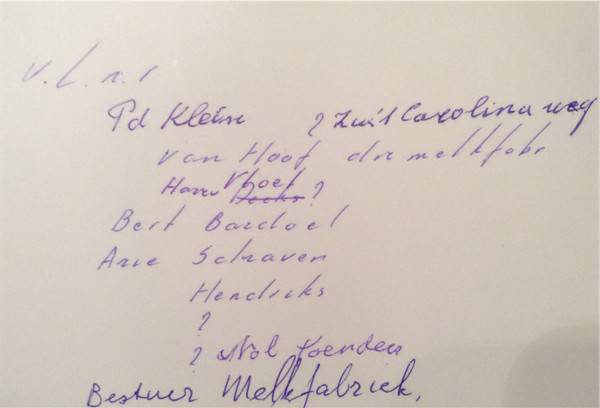 v.l.n.r
Pd Klein ? Zuid Carolina weg
van Hoof dir melkfabr
Harrie Vhoef ?
Bert Bardoel
Arie Schraven
Hendriks
?
? Nol
Bestuur Melkfabriek,